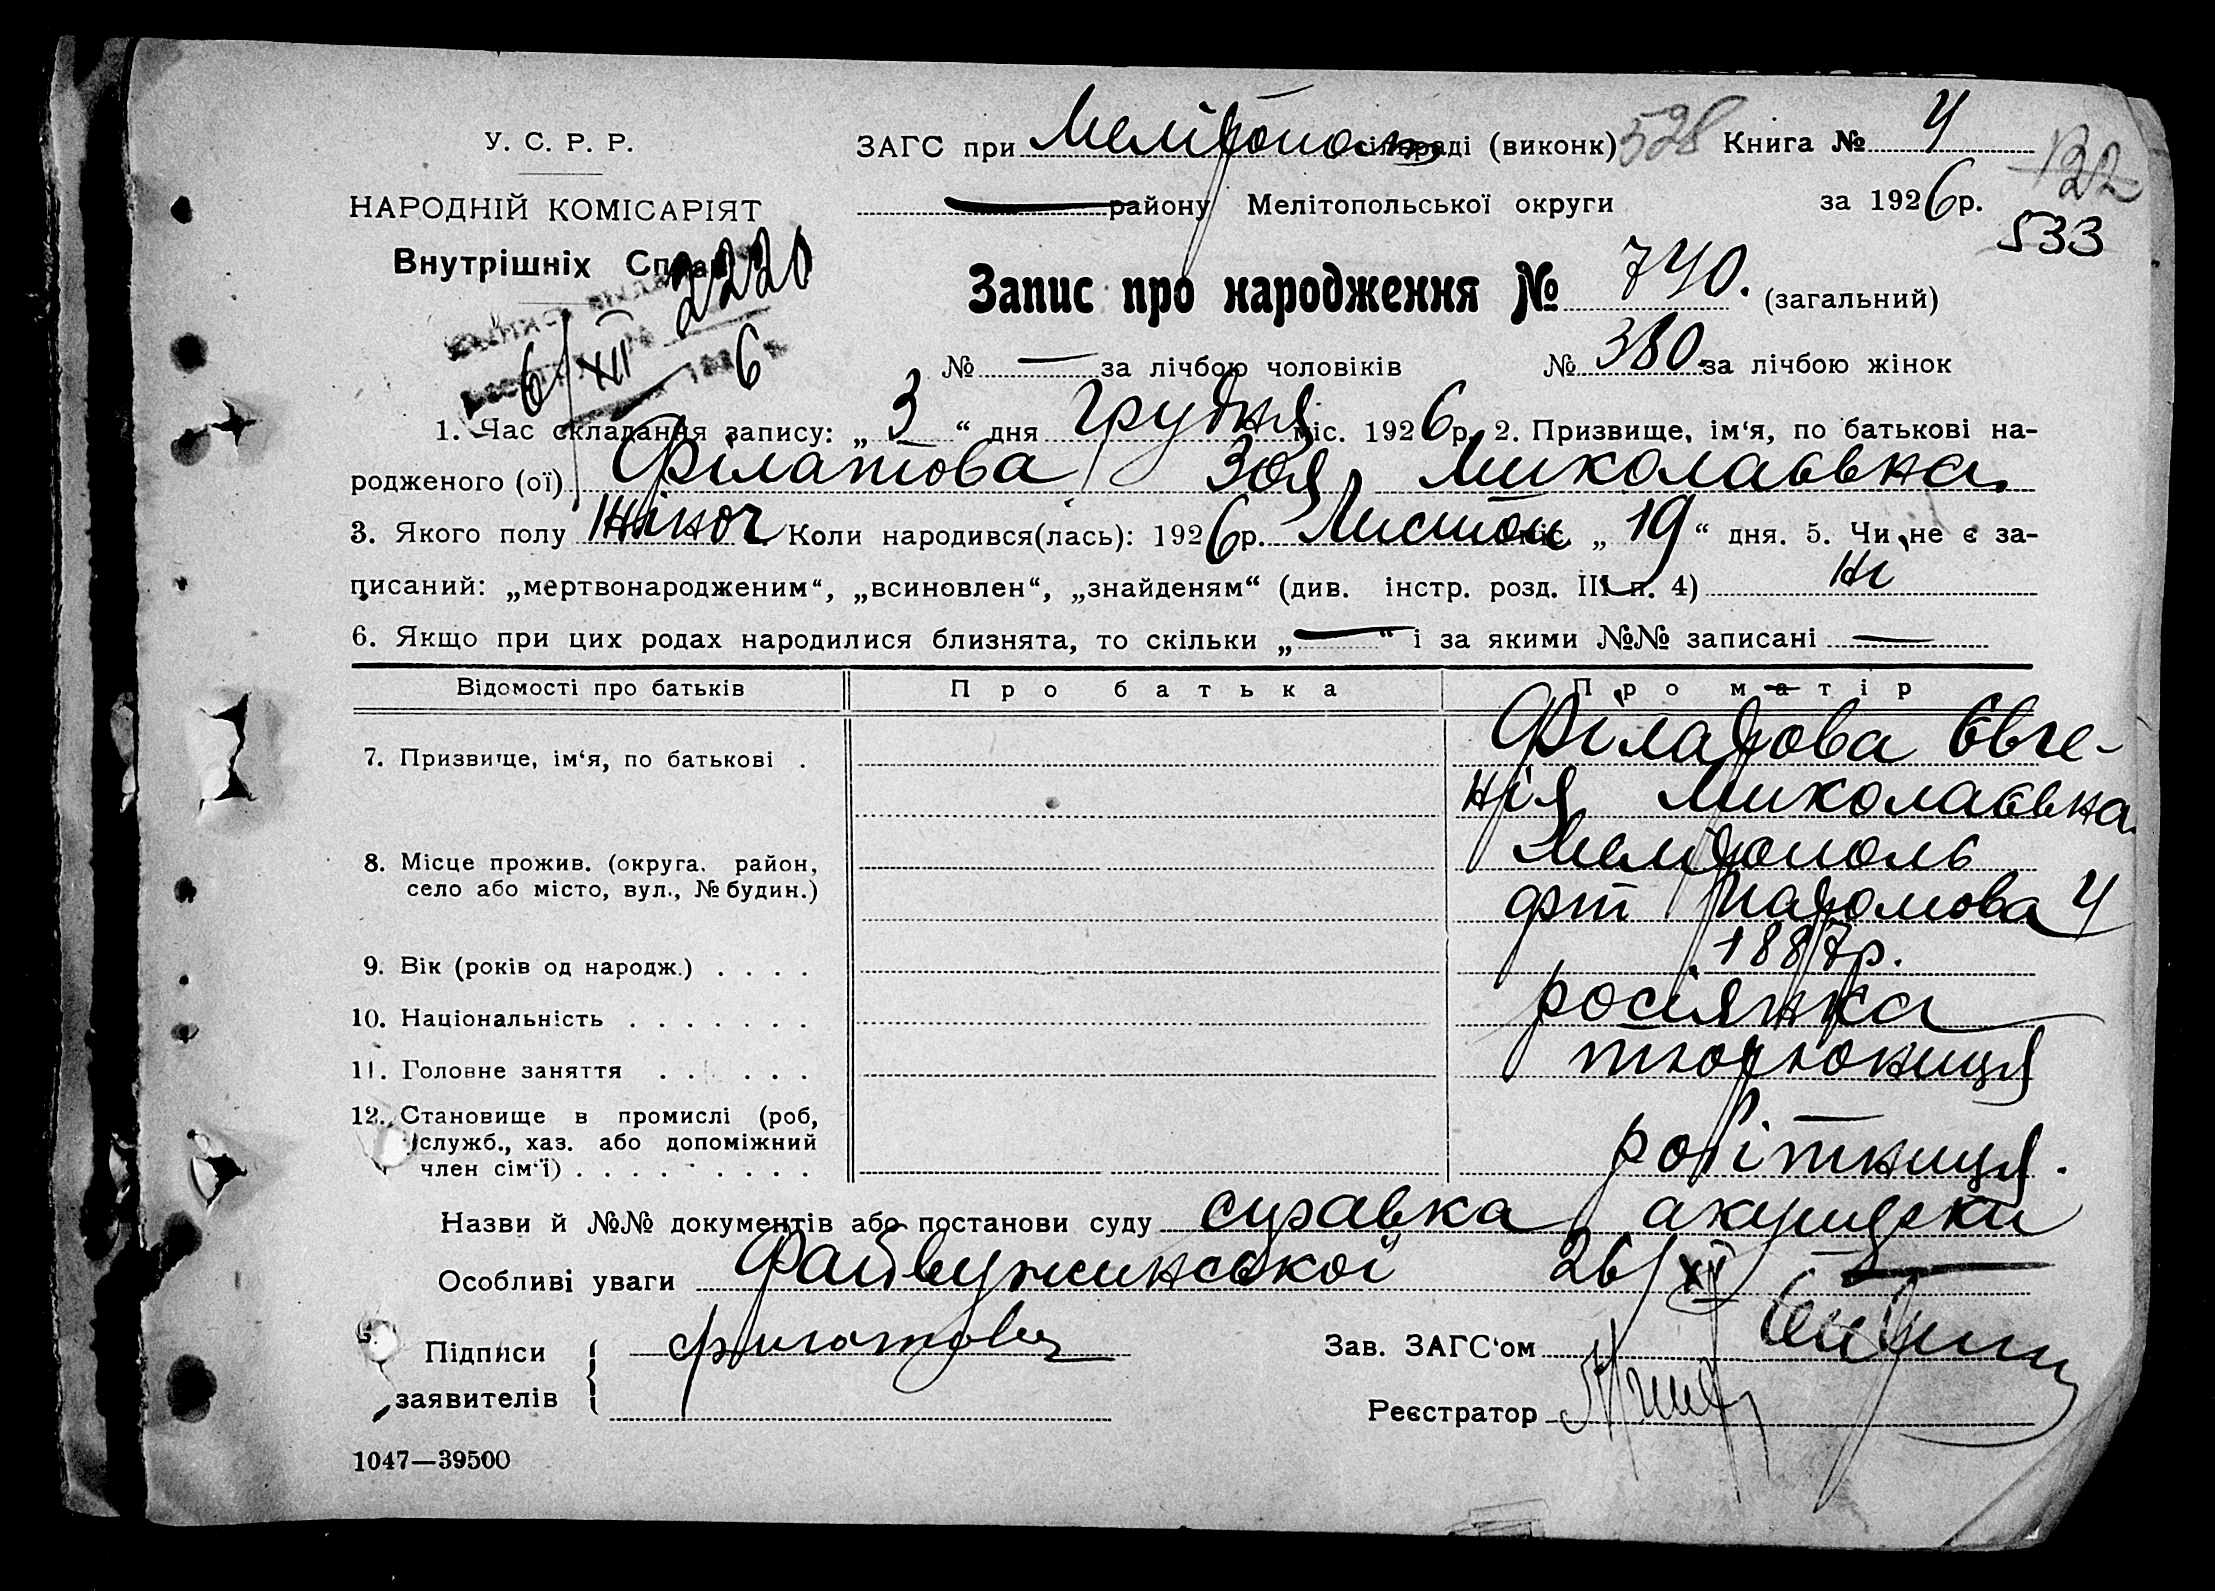 У. С. Р. Р.
ЗАГС при Мелітополь сільраді (виконк) 528 Книга № 4
122
НАРОДНІЙ КОМІСАРІЯТ
району Мелітопольської округи за 1926р.
533
Внутрішніх Справ
2220
Запис про народження № 740. (загальний)
6/XII 6
№ — за лічбою чоловіків № 380 за лічбою жінок
1. Час складання запису: „ 3 “ дня Грудня міс. 1926р. 2. Призвище, ім‘я, по батькові на-
родженого (ої) Філатова Зоя Миколаєвна.
3. Якого полу жіноч Коли народився(лась): 1926р. Листоп міс. „ 19 “ дня. 5. Чи не є за-
писаний: „мертвонародженим“, „всиновлен“, „знайденям“ (див. інстр. розд. III п. 4) Ні
6. Якщо при цих родах народилися близнята, то скільки „ — “ і за якими №№ записані —
Відомості про батьків Про батька Про матір
7. Призвище, ім‘я, по батькові . Філатова Євге-
нія Миколаєвна
8. Місце прожив. (округа, район, Мелітополь
село або місто, вул., № будин.) 4
9. Вік (років од народж.) . . . . 1887р.
10. Національність . . . . . . . росіянка
11. Головне заняття . . . . . .
12. Становище в промислі (роб,
служб., хаз. або допоміжний робітниця.
член сім‘ї) . . . . . . . . .
Назви й №№ документів або постанови суду справка акушерки
Особливі уваги 26/XI
Підписи Филатова Зав. ЗАГС‘ом
заявителів Реєстратор
1047—39500